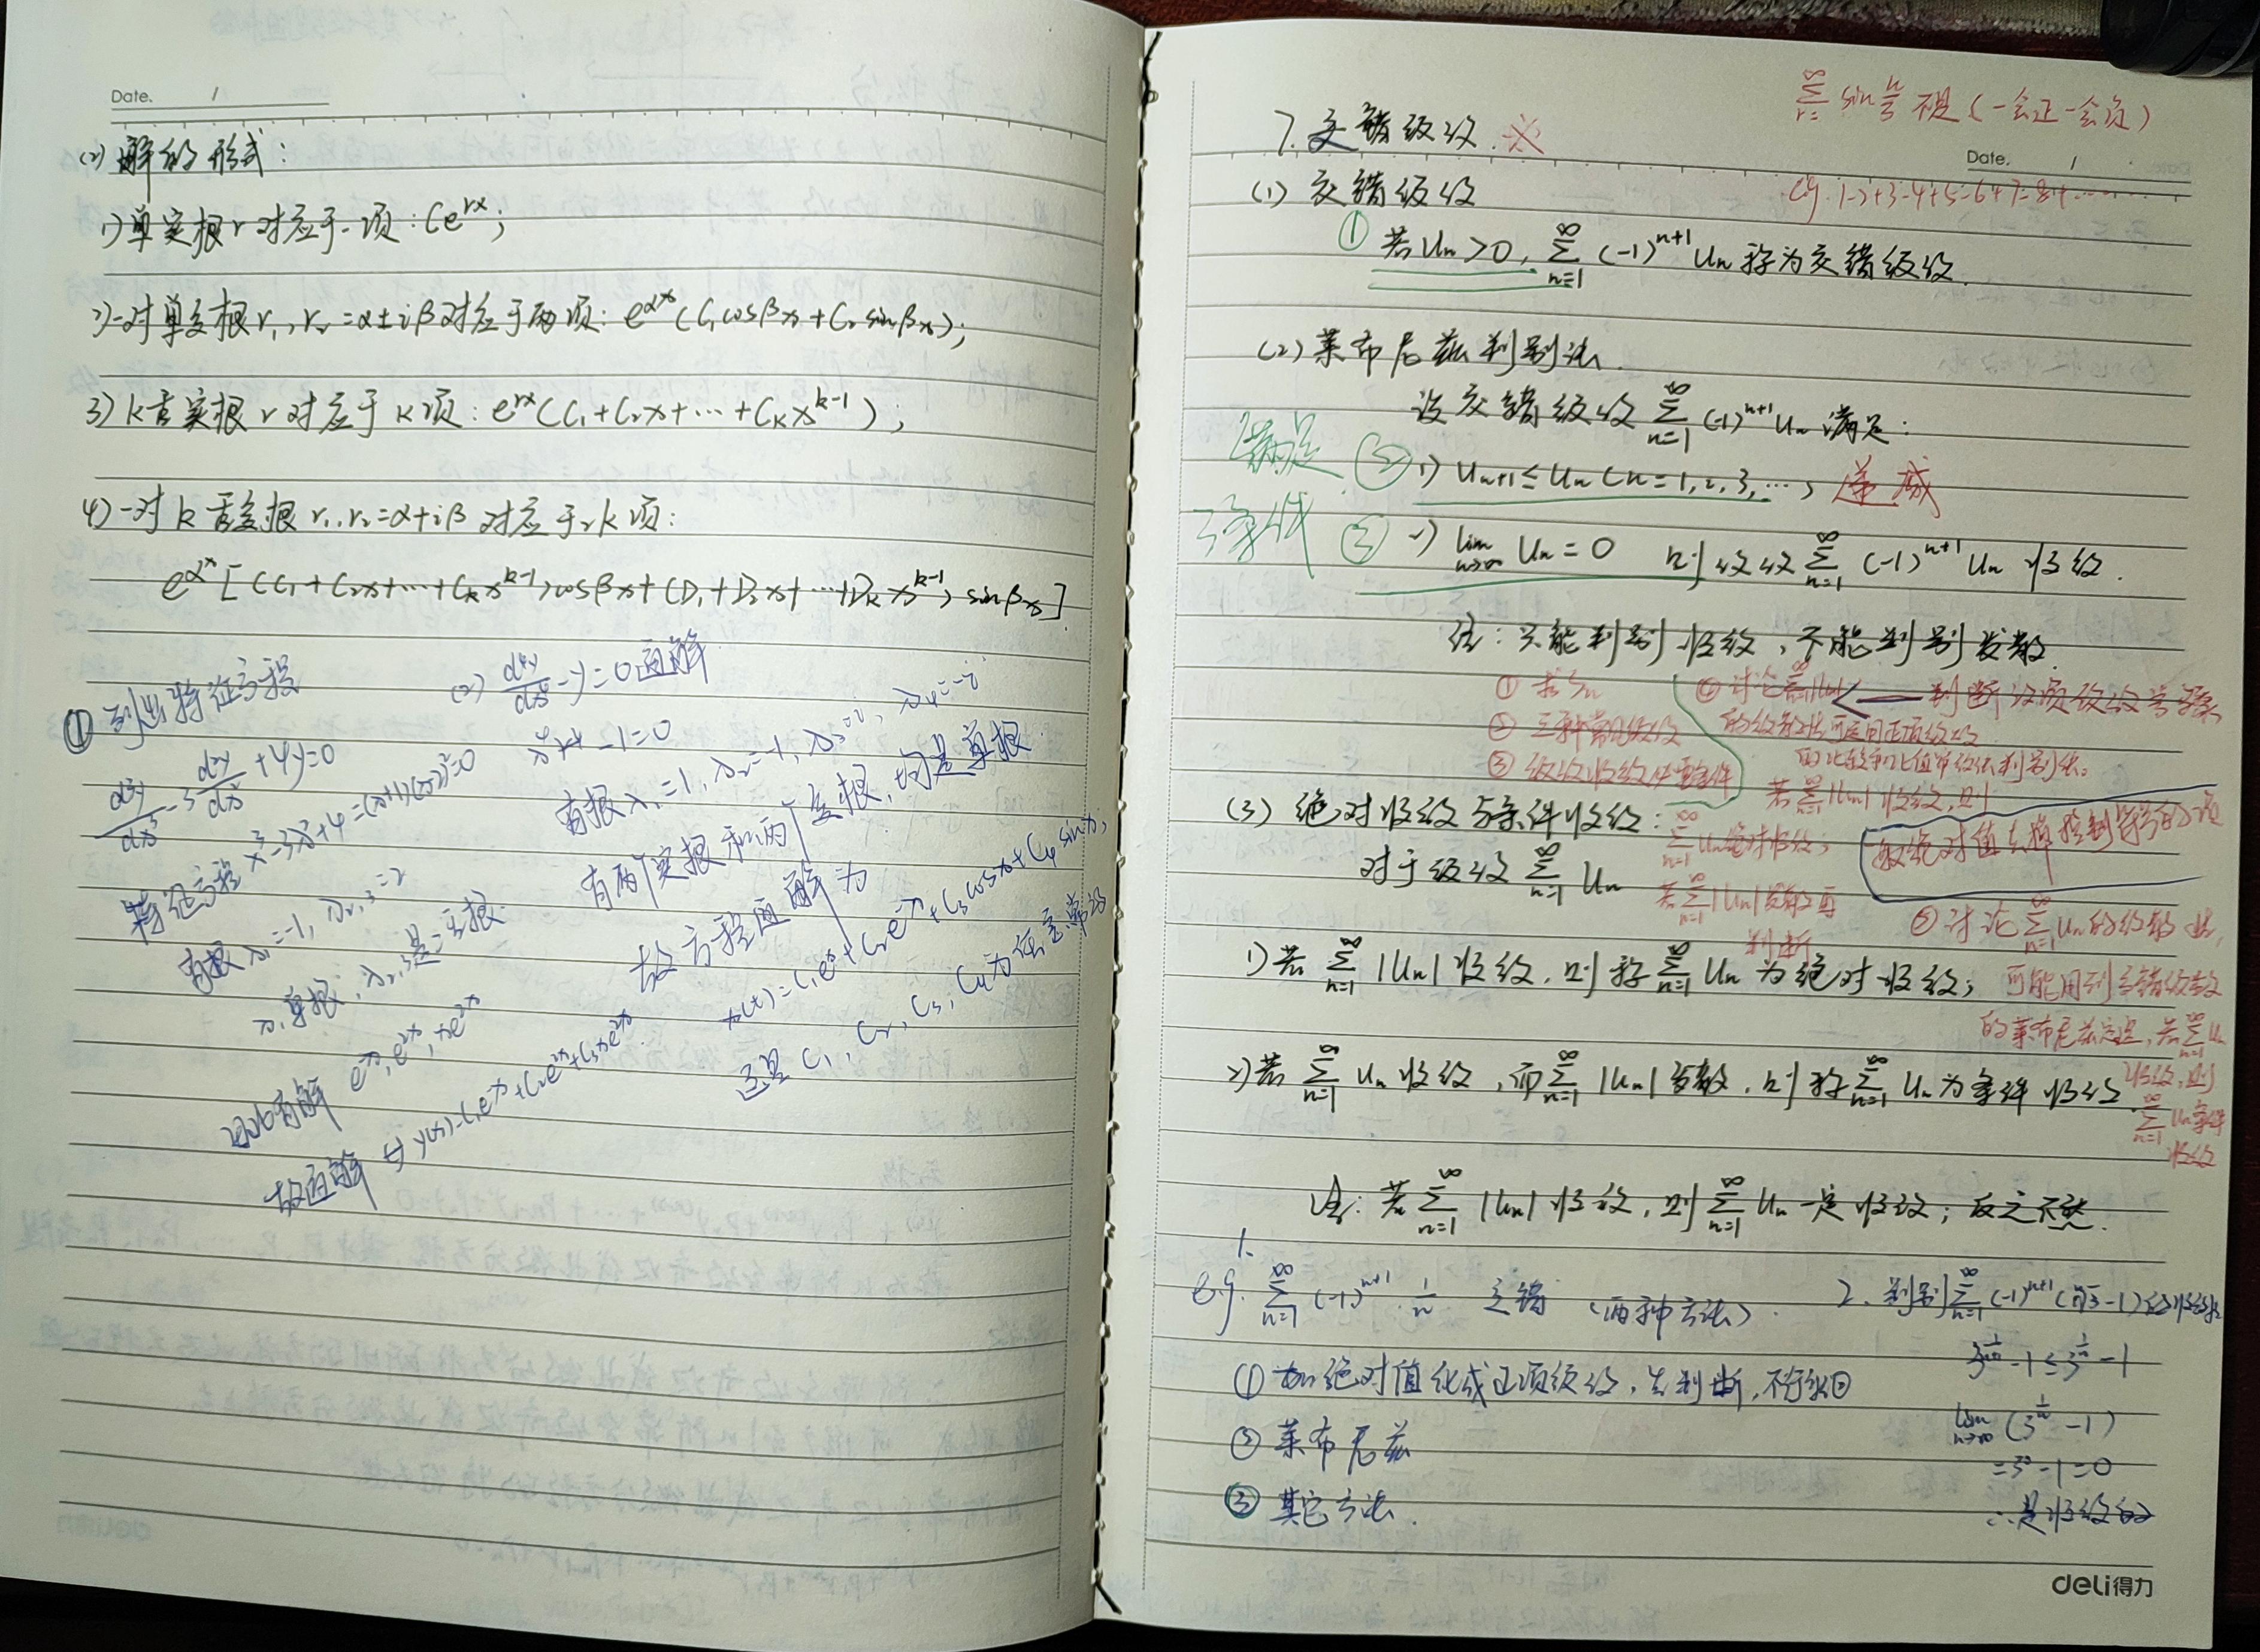 Date. /
(2) 解的形式：
1) 单实根 r 对应于一项：Ce^{rx}；
2) 一对单复根 r₁, r₂ = α±iβ 对应于两项：e^{αx}(C₁cosβx + C₂sinβx)；
3) k重实根 r 对应于 k 项：e^{rx}(C₁+C₂x+⋯+C_k x^{k-1})；
4) 一对 k 重复根 r₁, r₂=α+iβ 对应于2k 项：
e^{αx}[(C₁+C₂x+⋯+C_k x^{k-1})cosβx+(D₁+D₂x+⋯+D_k x^{k-1})sinβx].
① 列出特征方程
d³y/dx³ - 3 d²y/dx² + 4y=0
特征方程 λ³-3λ²+4=(λ+1)(λ-2)²=0
有根 λ₁=-1, λ₂,₃=2
λ₁单根, λ₂,₃是二重根.
因此有解 e^{-x}, e^{2x}, xe^{2x}
故通解为 y(x)=C₁e^{-x}+C₂e^{2x}+C₃xe^{2x}
(2) d⁴y/dx⁴ - y=0通解
有根 λ₁=1, λ₂=-1, λ₃=i, λ₄=-i.
有两个实根和两个复根, 均是单根.
故方程通解为
x(t)=C₁e^x+C₂e^{-x}+C₃cosx+C₄sinx,
这里 C₁, C₂, C₃, C₄为任意常数
(一会正一会负)
7. 交错级数 ※
Date. /
eg. 1-2+3-4+5-6+7-8+⋯⋯
(1) 交错级数
① 若Un>0, ∑_{n=1}^∞ (-1)^{n+1} Un 称为交错级数.
(2) 莱布尼兹判别法.
设交错级数 ∑_{n=1}^∞ (-1)^{n+1} Un 满足：
满足
3条件
② 1) U_{n+1} ≤ Un (n=1, 2, 3, ⋯) 递减
③ 2) lim_{n→∞} Un = 0 则级数 ∑_{n=1}^∞ (-1)^{n+1} Un 收敛.
注：只能判别收敛, 不能判别发散.
① 求Sn
② 三种常见级数
③ 级数收敛必要条件
① 讨论∑|Un| ← 判断级项级数步骤
的敛散性可应用正项级数
的比较和比值等敛法判别法。
若∑_{n=1}^∞|Un| 收敛, 则
∑_{n=1}^∞ Un绝对收敛；
若∑_{n=1}^∞ |Un| 发散再
判断
取绝对值去掉控制符号的项
② 讨论 ∑_{n=1}^∞ Un 的敛散性,
可能用到交错级数
的莱布尼兹定理, 若∑_{n=1}^∞ Un
收敛, 则
∑_{n=1}^∞ Un条件
收敛
(3) 绝对收敛与条件收敛：
对于级数 ∑_{n=1}^∞ Un
1) 若 ∑_{n=1}^∞ |Un| 收敛, 则称 ∑_{n=1}^∞ Un 为绝对收敛；
2) 若 ∑_{n=1}^∞ Un 收敛, 而 ∑_{n=1}^∞ |Un| 发散, 则称 ∑_{n=1}^∞ Un 为条件收敛.
注：若 ∑_{n=1}^∞ |Un| 收敛, 则 ∑_{n=1}^∞ Un 一定收敛；反之不然.
1.
e.g. ∑_{n=1}^∞ (-1)^{n+1} · 1/n 交错 (两种方法).
① 加绝对值化成正项级数, 先判断, 不行②
② 莱布尼兹
③ 其它方法.
2. 判别 ∑_{n=1}^∞ (-1)^{n+1} (ⁿ√3 - 1) 的收敛性
3^{1/(n+1)} - 1 ≤ 3^{1/n} - 1
lim_{n→∞} (3^{1/n} - 1)
= 3⁰ - 1 = 0
∴ 是收敛的
deli得力